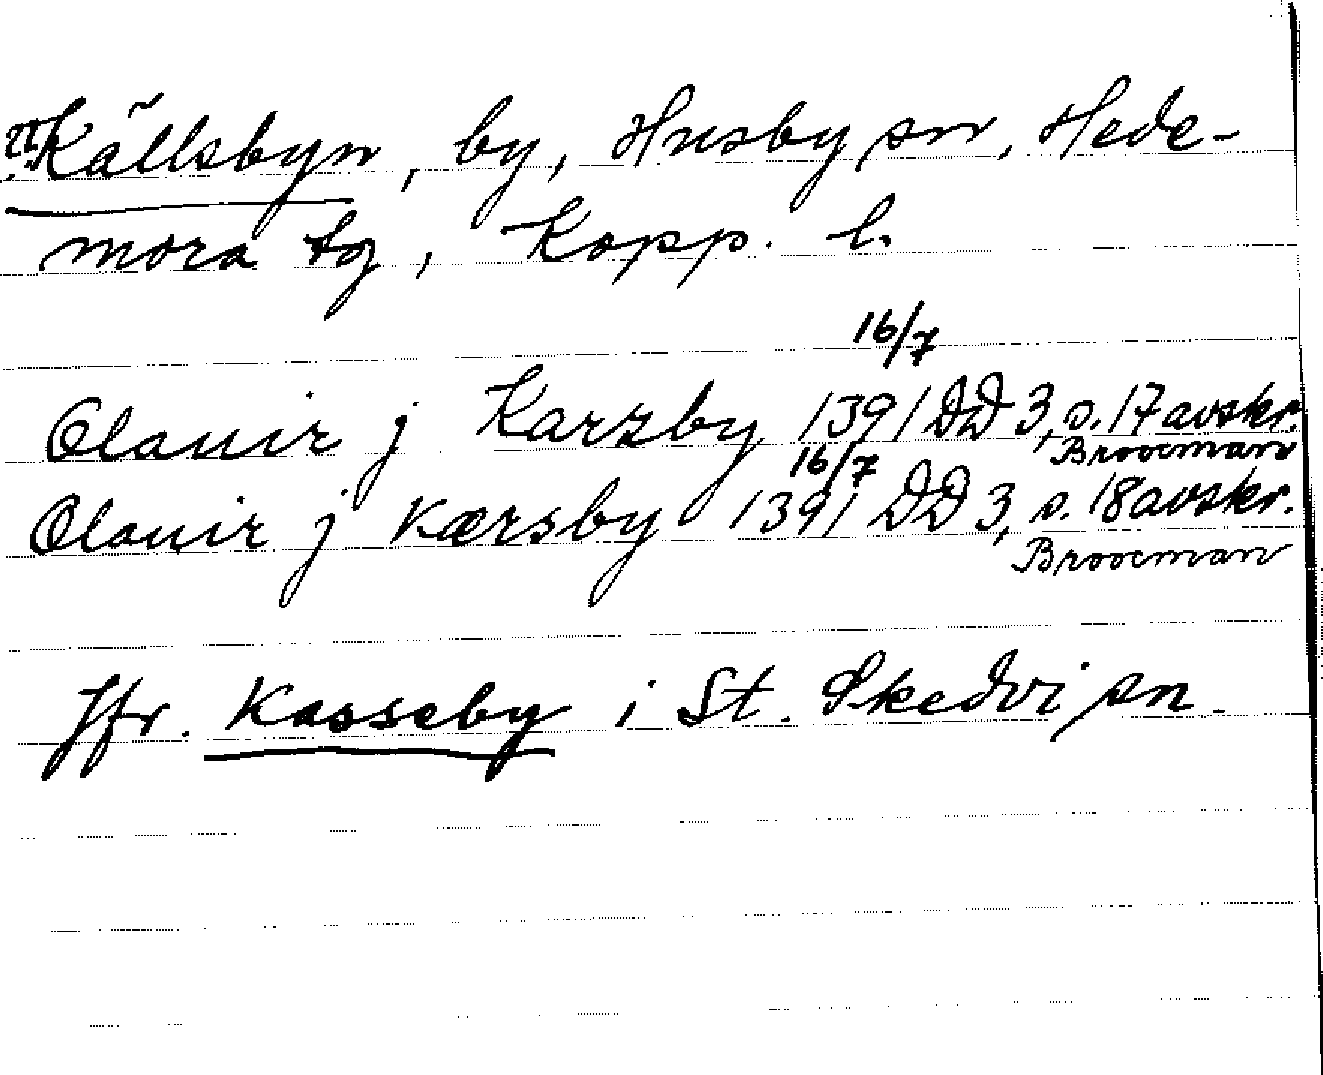 Källsbyn, by, Husby sn, Hede-
mora tg, Kopp. l.
16/7
Olauir j Karzby 1391 DD 3, s. 17 avskr.
Broocman
16/7
Olauir j Kærsby 1391 DD 3, s. 18 avskr.
Broocman
Jfr. Kasseby i St. Skedvi sn.